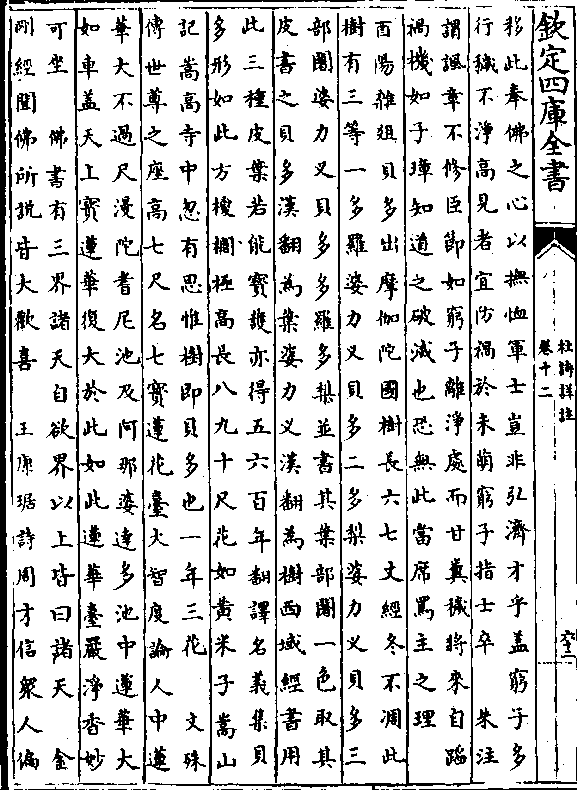 欽定四庫全書
杜詩詳註
卷十二
移此奉佛之心以撫恤軍士豈非弘濟才乎蓋窮子多
行穢不淨高見者宜防禍於未萌窮子指士卒　朱注
謂諷章不修臣節如窮子離淨處而甘糞穢將來自蹈
禍機如子璋知道之破滅也恐無此當席罵主之理
酉陽雜俎貝多出摩伽陀國樹長六七丈經冬不凋此
樹有三等一多羅婆力叉貝多二多梨婆力叉貝多三
部闍婆力叉貝多多羅多梨並書其葉部闍一色取其
皮書之貝多漢翻為葉婆力叉漢翻為樹西域經書用
此三種皮葉若能寶護亦得五六百年翻譯名義集貝
多形如此方椶櫚極高長八九十尺花如黄米子嵩山
記嵩高寺中忽有思惟樹即貝多也一年三花　文殊
傳世尊之座高七尺名七寶蓮花臺大智度論人中蓮
華大不過尺漫陀耆尼池及阿那婆達多池中蓮華大
如車盖天上寶蓮華復大於此如此蓮華臺嚴淨香妙
可坐　佛書有三界諸天自欲界以上皆曰諸天　金
剛經聞佛所説皆大歡喜　王康琚詩周才信衆人偏